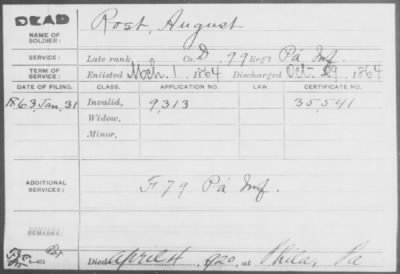 DEAD
NAME OF SOLDIER: Rost, August
SERVICE: Late rank, Co. D, 99 Reg't Pa Inf.
TERM OF SERVICE: Enlisted Mch. 1, 1864 Discharged Oct. 29, 1864
DATE OF FILING. CLASS. APPLICATION NO. LAW. CERTIFICATE NO.
1863, Jan, 31 Invalid, 9,313 35,541
Widow,
Minor,
ADDITIONAL SERVICES: F 79 Pa Inf.
REMARKS:
Died April 4, 1920, at Phila, Pa